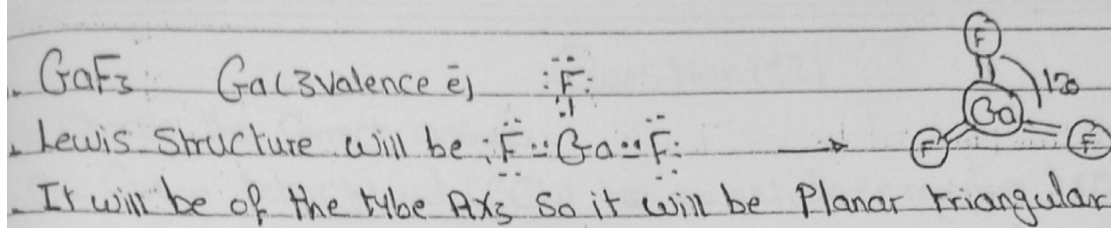 . GaF₃ Ga (3 valence ē) :F̈:
. Lewis Structure will be :F̤̈ : Ga : F̤̈: → F Ga F F 120
. It will be of the tybe AX₃ So it will be Planar triangular